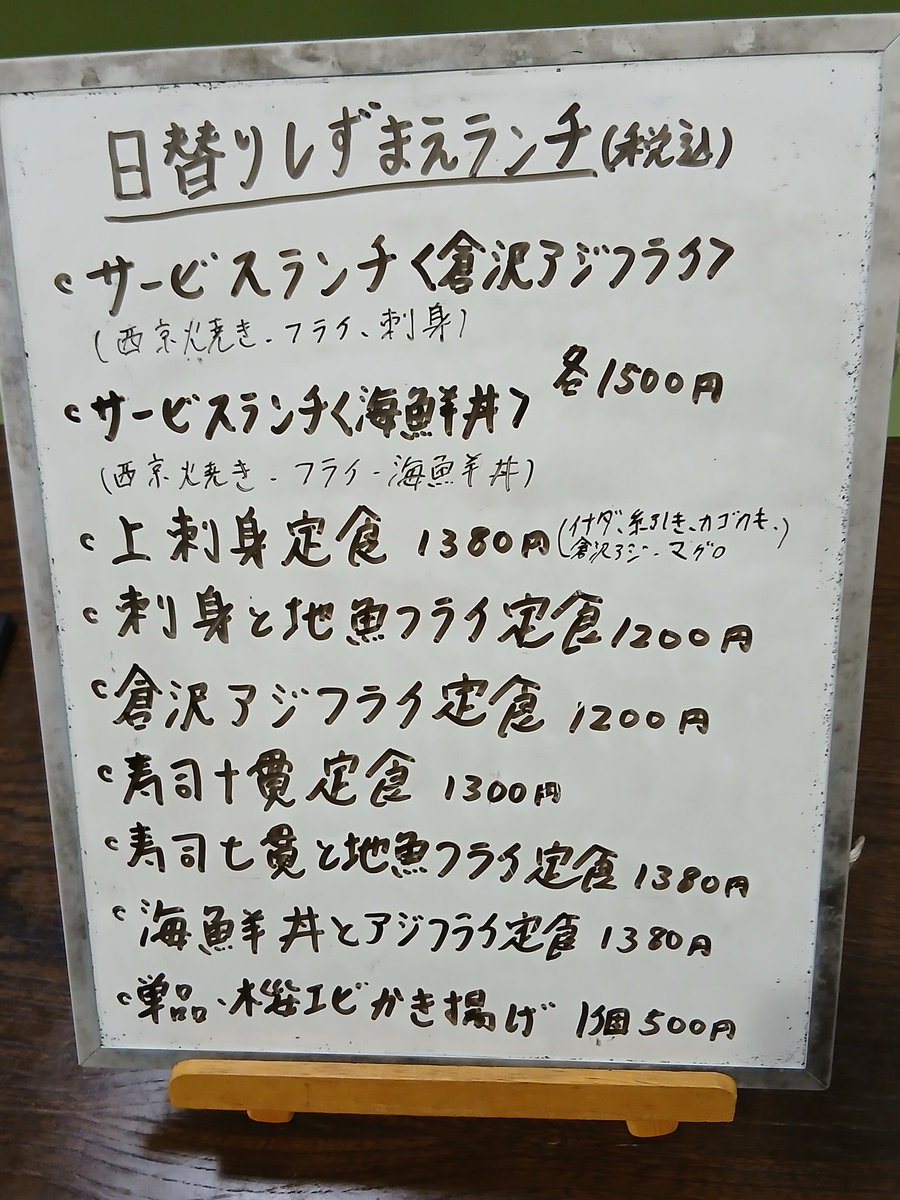 日替りしずまえランチ(税込)
・サービスランチ〈倉沢アジフライ〉
(西京焼き、フライ、刺身)
各1500円
・サービスランチ〈海鮮丼〉
(西京焼き、フライ、海鮮丼)
・上刺身定食 1380円(イナダ、糸引き、カゴカキ、
倉沢アジ、マグロ
・刺身と地魚フライ定食 1200円
・倉沢アジフライ定食 1200円
・寿司十貫定食 1300円
・寿司七貫と地魚フライ定食 1380円
・海鮮丼とアジフライ定食 1380円
・単品・桜エビかき揚げ 1個500円